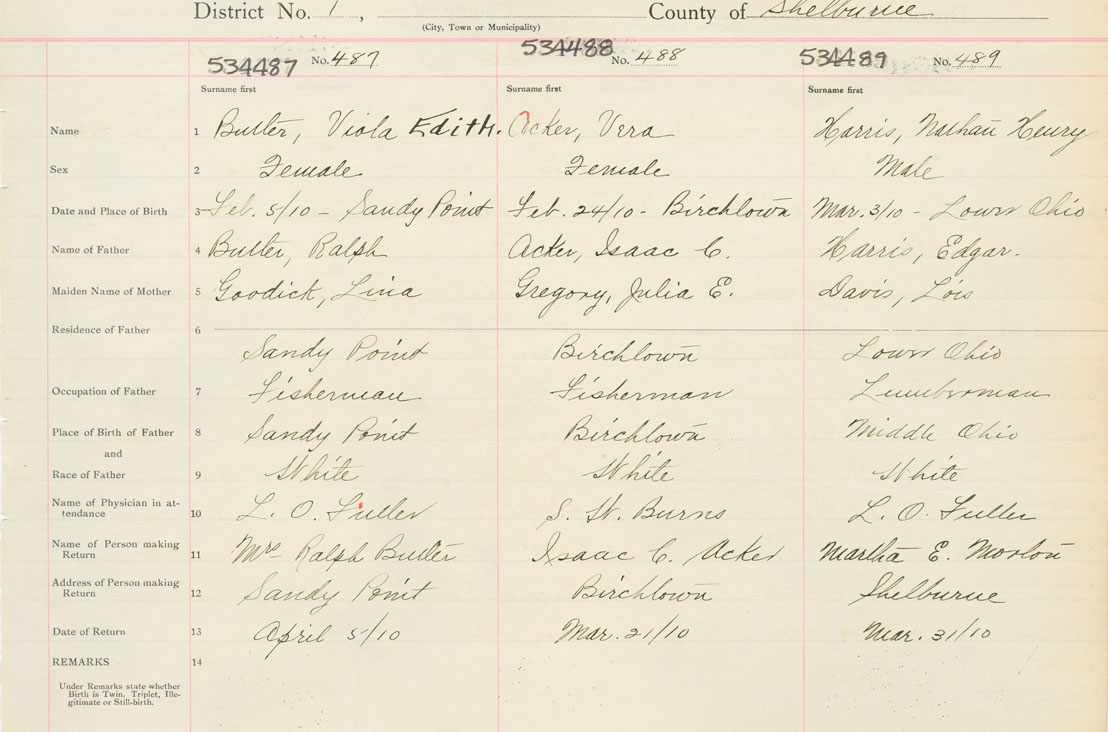 District No. 1, County of Shelburne
(City, Town or Municipality)
534487 No. 487 534488 No. 488 534489 No. 489
Surname first Surname first Surname first
Name 1 Butler, Viola Edith. Acker, Vera Harris, Nathan Henry
Sex 2 Female Female Male
Date and Place of Birth 3 Feb. 5/10 - Sandy Point Feb. 24/10 - Birchtown Mar. 3/10 - Lower Ohio
Name of Father 4 Butler, Ralph Acker, Isaac C. Harris, Edgar.
Maiden Name of Mother 5 Goodick, Lina Gregory, Julia E. Davis, Lois
Residence of Father 6
Sandy Point Birchtown Lower Ohio
Occupation of Father 7 Fisherman Fisherman Lumberman
Place of Birth of Father 8 Sandy Point Birchtown Middle Ohio
and
Race of Father 9 White White White
Name of Physician in at-
tendance 10 L. O. Fuller S. W. Burns L. O. Fuller
Name of Person making
Return 11 Mrs Ralph Butler Isaac C. Acker Martha E. Morton
Address of Person making
Return 12 Sandy Point Birchtown Shelburne
Date of Return 13 April 5/10 Mar. 21/10 Mar. 31/10
REMARKS 14
Under Remarks state whether
Birth is Twin, Triplet, Ille-
gitimate or Still-birth.